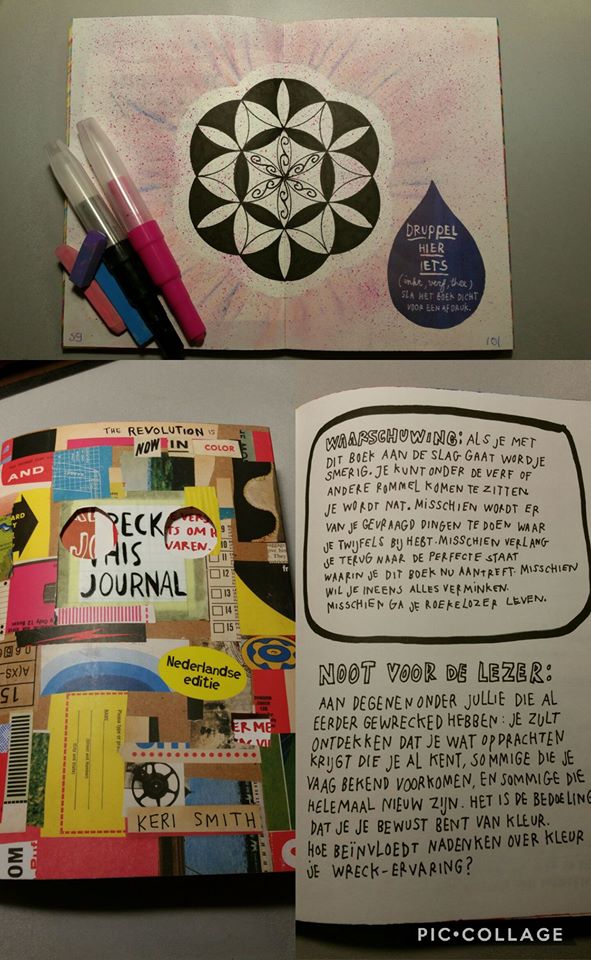 DRUPPEL
HIER
IETS
(inkt, verf, thee)
SLA HET BOEK DICHT
VOOR EEN AFDRUK.
101
THE REVOLUTION IS
NOW IN COLOR
AND
RECK
THIS
JOURNAL
VAREN.
9
10
11
12
13
14
15
Nederlandse
editie
15
A(XS-
ER ME
KERI SMITH
OM
WAARSCHUWING: ALS JE MET
DIT BOEK AAN DE SLAG GAAT WORD JE
SMERIG. JE KUNT ONDER DE VERF OF
ANDERE ROMMEL KOMEN TE ZITTEN.
JE WORDT NAT. MISSCHIEN WORDT ER
VAN JE GEVRAAGD DINGEN TE DOEN WAAR
JE TWIJFELS BIJ HEBT. MISSCHIEN VERLANG
JE TERUG NAAR DE PERFECTE STAAT
WAARIN JE DIT BOEK NU AANTREFT. MISSCHIEN
WIL JE INEENS ALLES VERMINKEN.
MISSCHIEN GA JE ROEKELOZER LEVEN.
NOOT VOOR DE LEZER:
AAN DEGENEN ONDER JULLIE DIE AL
EERDER GEWRECKED HEBBEN: JE ZULT
ONTDEKKEN DAT JE WAT OPDRACHTEN
KRIJGT DIE JE AL KENT, SOMMIGE DIE JE
VAAG BEKEND VOORKOMEN, EN SOMMIGE DIE
HELEMAAL NIEUW ZIJN. HET IS DE BEDOELING
DAT JE JE BEWUST BENT VAN KLEUR.
HOE BEÏNVLOEDT NADENKEN OVER KLEUR
JE WRECK-ERVARING?
PIC•COLLAGE